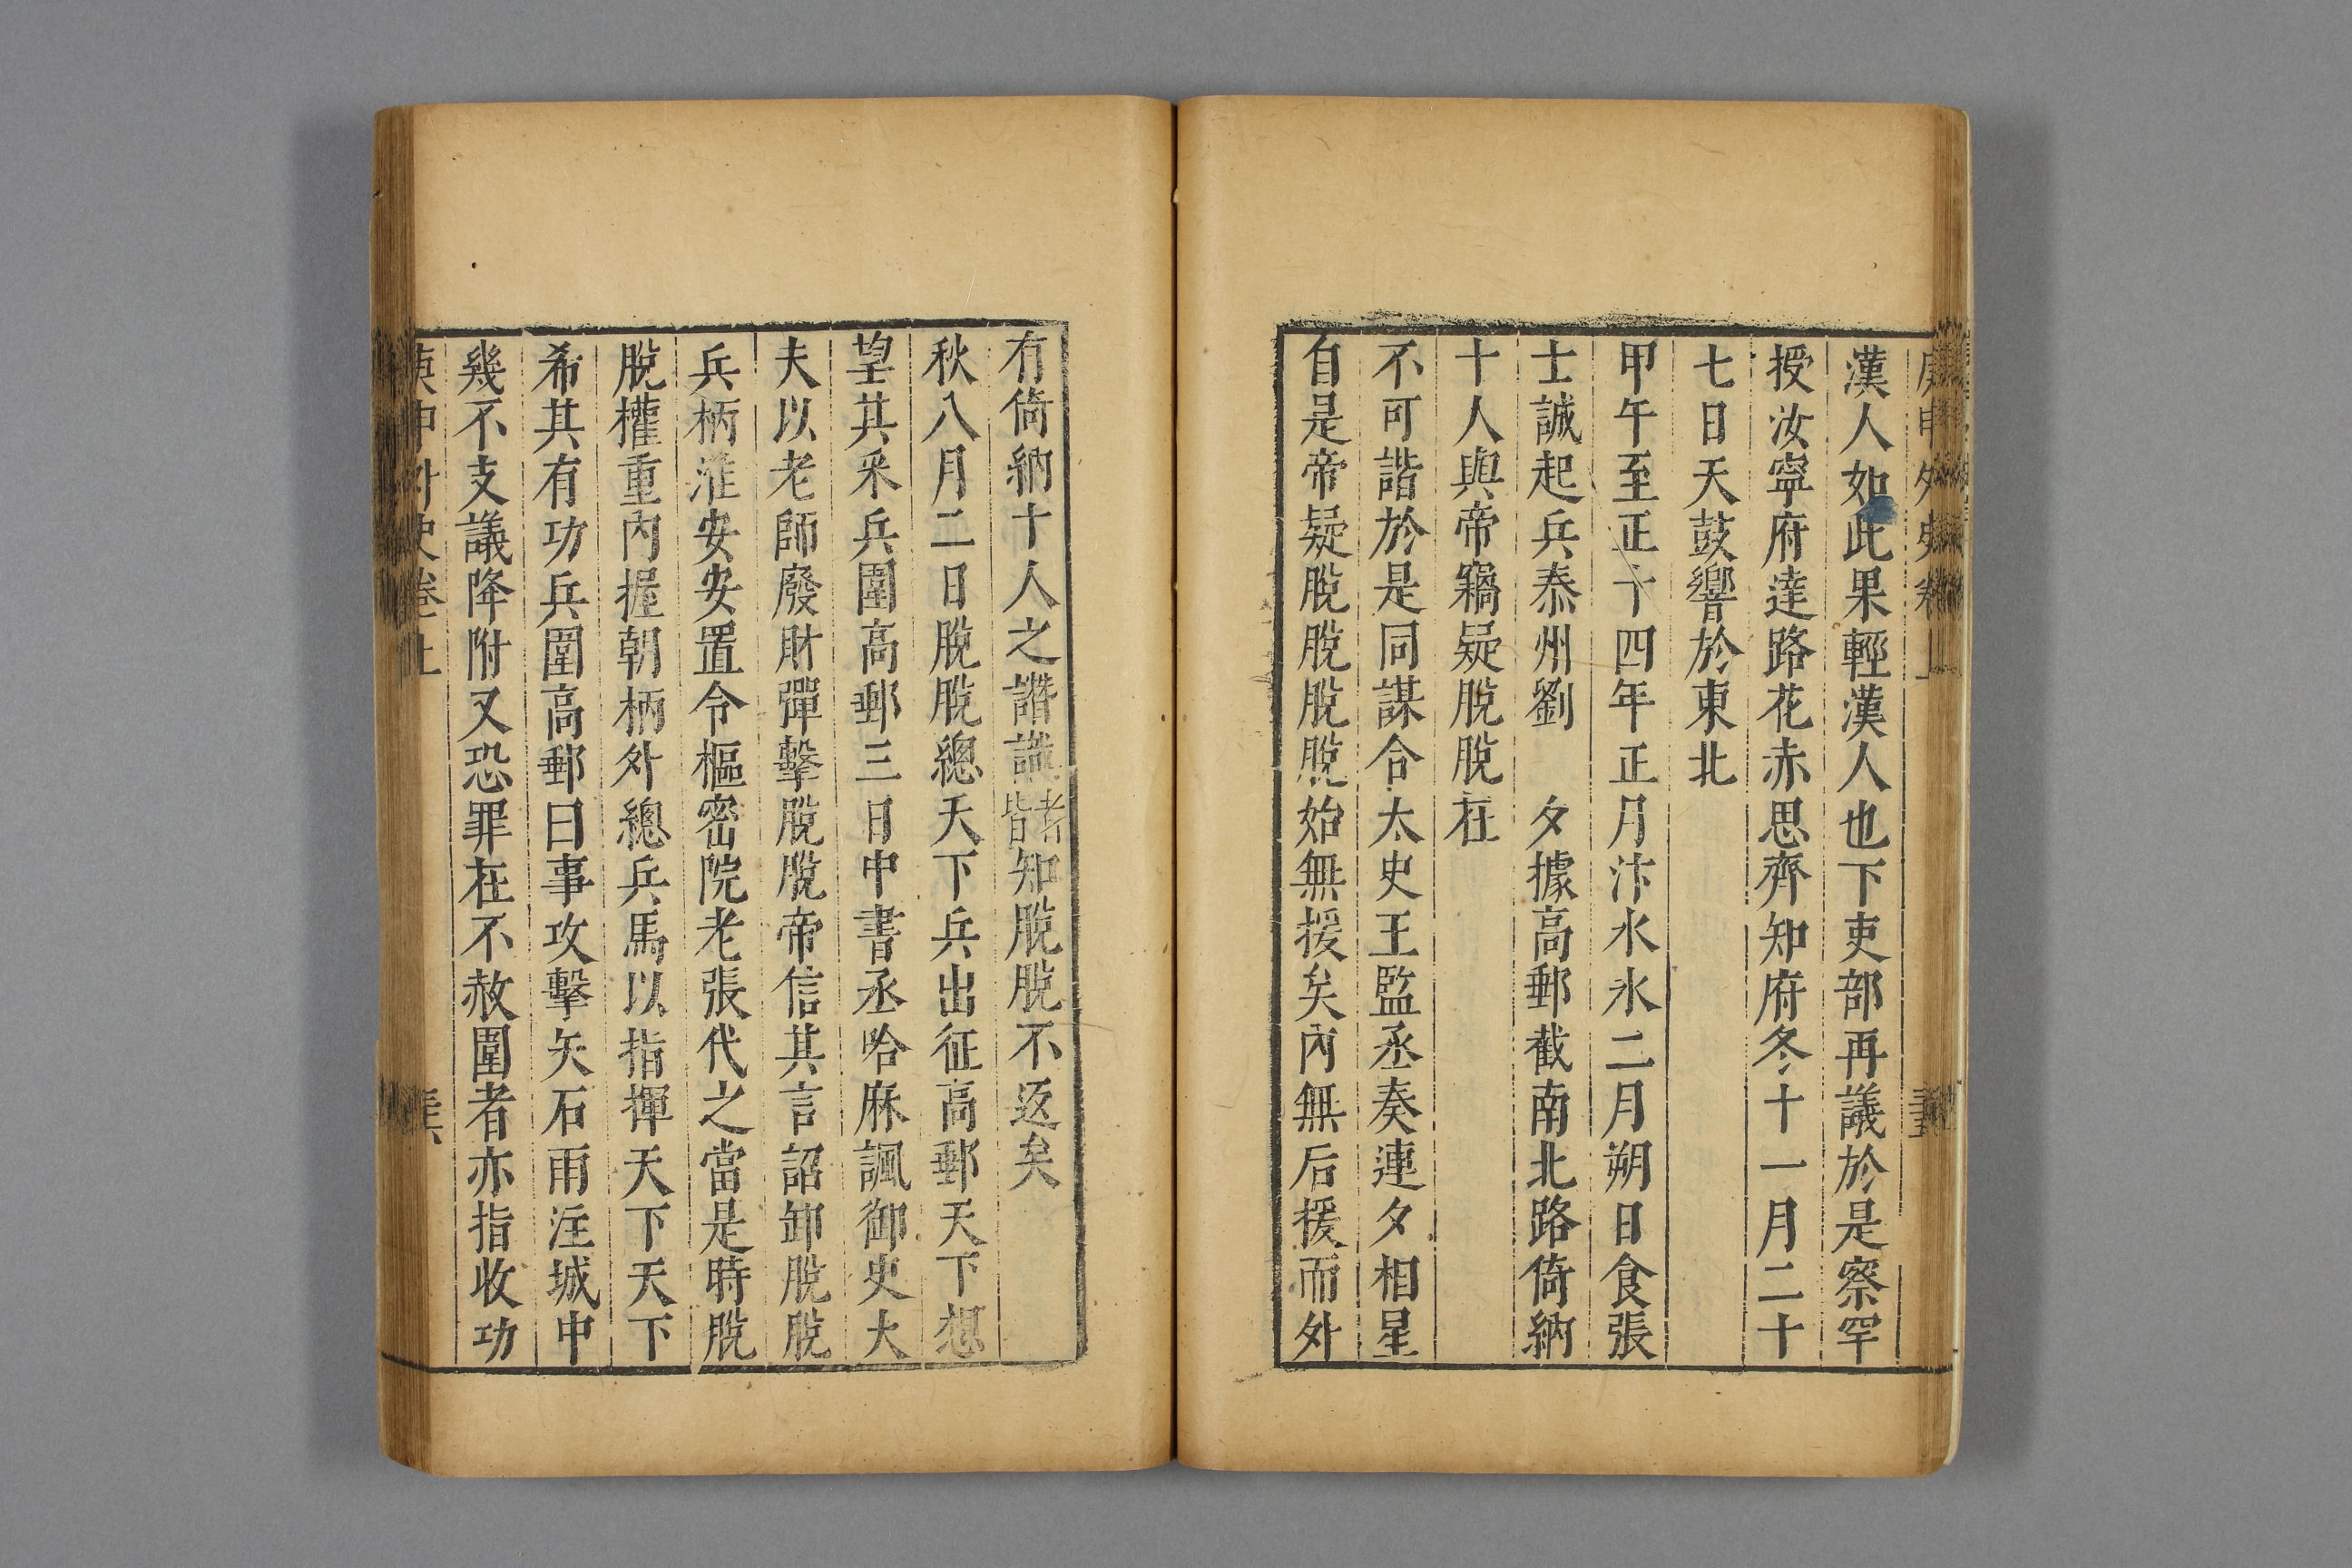 漢人如此果輕漢人也下吏部再議於是察罕
授汝寧府達路花赤思齊知府冬十一月二十
七日天鼓響於東北
甲午至正十四年正月汴水氷二月朔日食張
士誠起兵泰州劉　夕據高郵截南北路倚納
十人與帝竊疑脫脫在
不可諧於是同謀合太史王監丞奏連夕相星
自是帝疑脫脫脫脫始無援矣內無后援而外
有倚納十人之譖識者皆知脫脫不返矣
秋八月二日脫脫總天下兵出征高郵天下想
望其釆兵圍高郵三日中書丞哈麻諷御史大
夫以老師廢財彈擊脫脫帝信其言詔卸脫脫
兵柄淮安安置令樞密院老張代之當是時脫
脫權重內握朝柄外總兵馬以指揮天下天下
希其有功兵圍高郵曰事攻擊矢石雨注城中
幾不支議降附又恐罪在不赦圍者亦指收功
庚申外史卷上